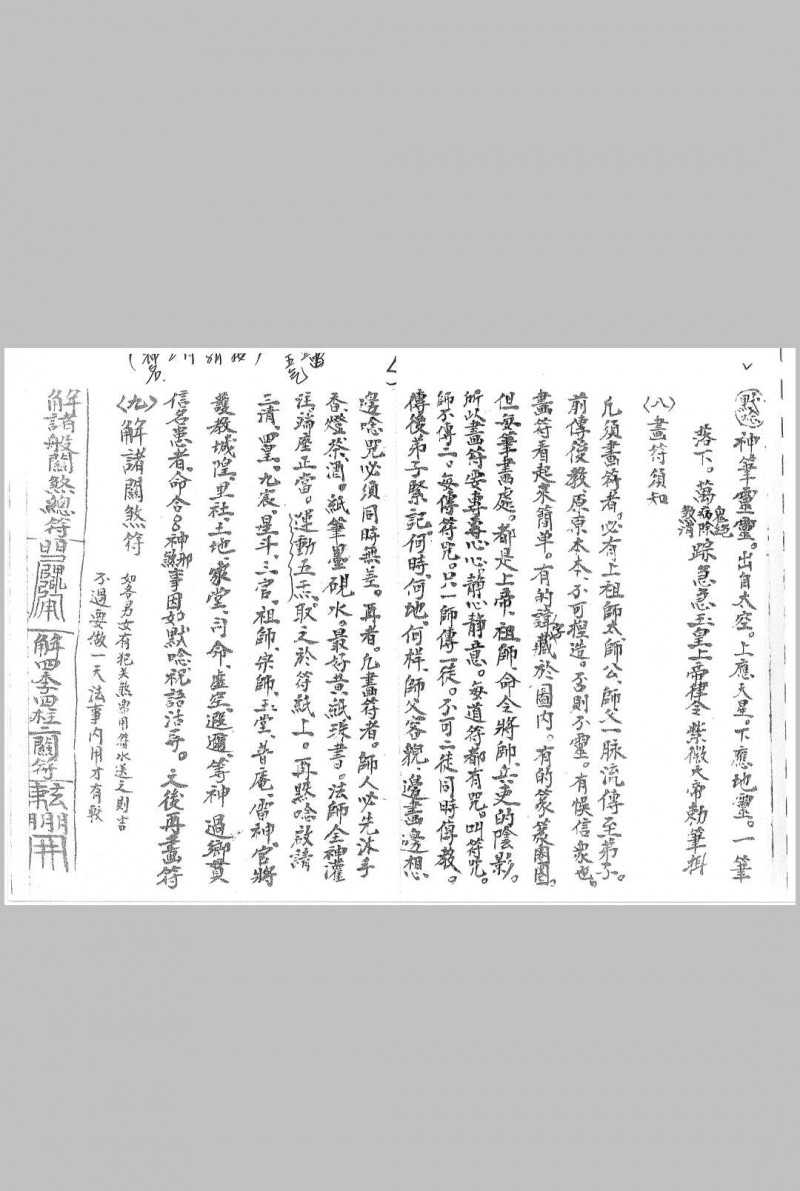 默念 神筆靈靈。出自太空。上應天星。下應地靈。一筆
落下。萬病除 鬼絕 教消 踪急急玉皇上帝律令紫微大帝勅筆掛
〈八〉畫符須知
凡須畫符者。必有上祖師太師公、師父一脉流傳至弟子。
前傳後教原原本本、不可捏造。否則不靈。有悞信衆也。
畫符看起來簡单。有的諱字藏於圖內。有的篆篆圈圈。
但每筆畫處。都是上帝、祖師、命令將師、兵吏的陰影。
所以畫符要專尋心、静心静意。每道符都有咒。叫符咒。
師不傳二。每傳符咒。只一師傳一徒。不可二徒同時傳教。
傳後弟子緊記。何時、何地、何样、師父容貌、邊畫邊想、
邊唸咒必須同時無差。再者。凡畫符者。師人必先沐手
香、燈茶酒。紙筆墨硯水。最好黃紙珠書。法師全神灌
注端座正當。運動五炁。取之於符紙上。再默唸啟請
三清、四皇、九宸、星斗、三官、祖師、宗師、玉堂、普庵、雷神、官將
護教城隍、里社、土地、家堂、司命、虛空遐邇、等神 過鄉貫
信名患者。命合8神煞 那事因如默唸祝語活手。 之後再畫符
〈九〉解諸關煞符
如各男女有犯关煞宗用符水送之則吉
不過要做一天法事內用才有較
解諸般關煞總符
解四季四柱二關符